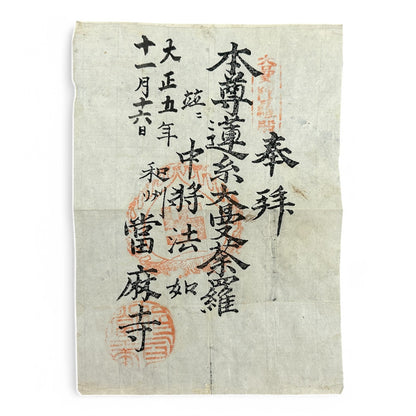 奉拜
本尊蓮糸大曼荼羅
並ニ中将法如
和州當麻寺
大正五年
十一月十六日